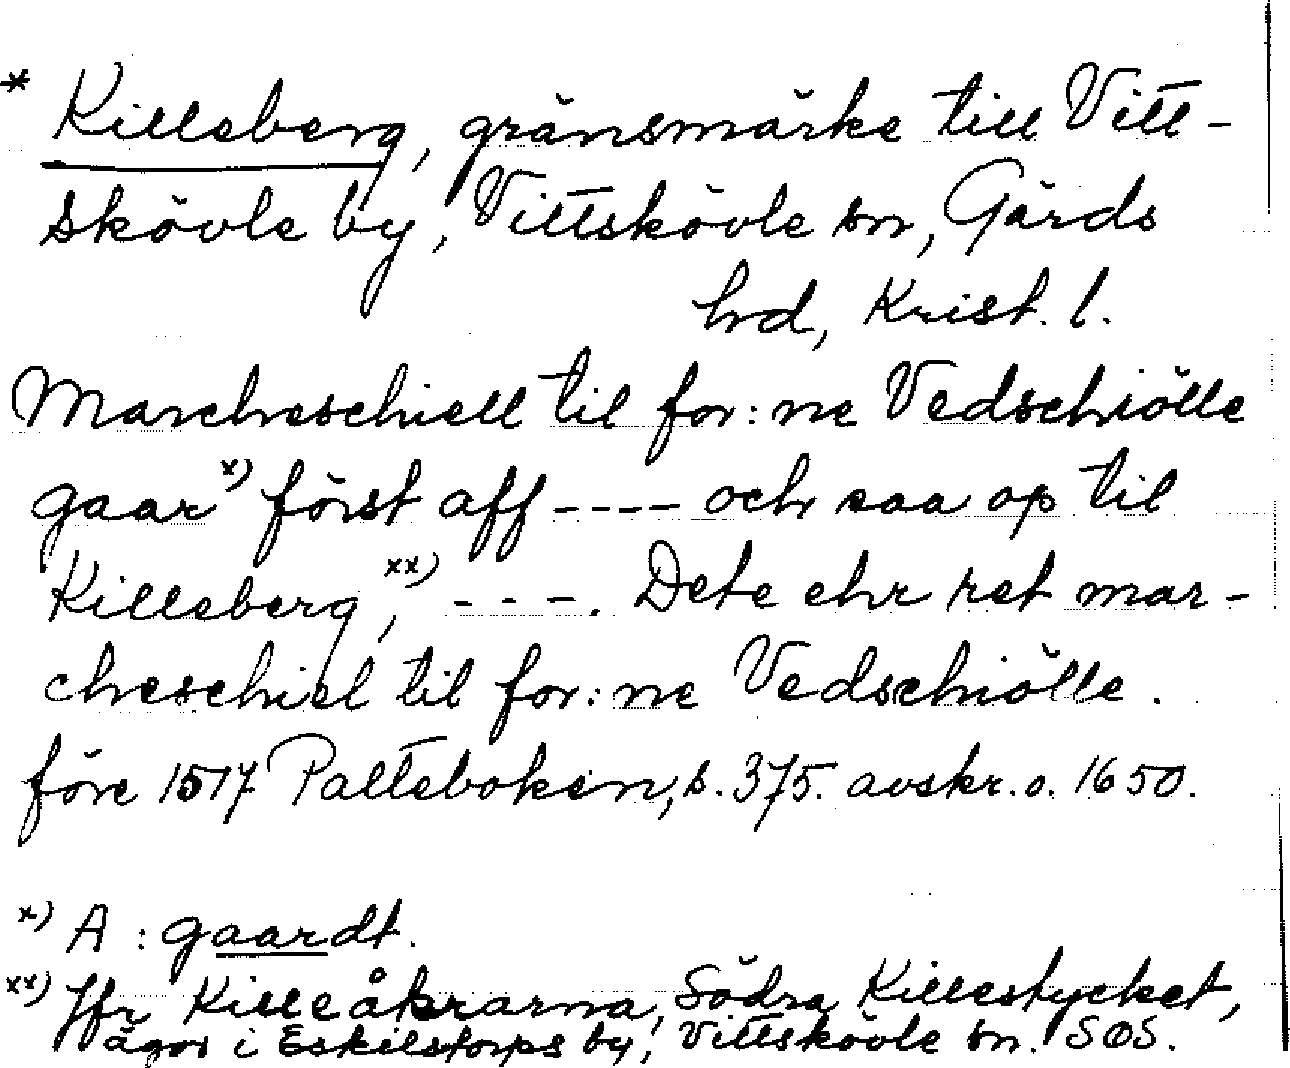 * Killeberg, gränsmärke till Vitt-
skövle by, Vittskövle sn, Gärds
hrd, Krist. l.
Marcheschiell til for:ne Vedschiölle
gaar x) först aff ---- och saa op til
Killeberg, xx) ---. Dete ehr ret mar-
cheschiel til for:ne Vedschiölle.
före 1517 Palteboken, s. 375. avskr. o. 1650.
x) A : gaardt.
xx) Jfr Killeåkrarna, Södra Killestycket,
ägor i Eskilstorps by, Vittskövle sn. SOS.